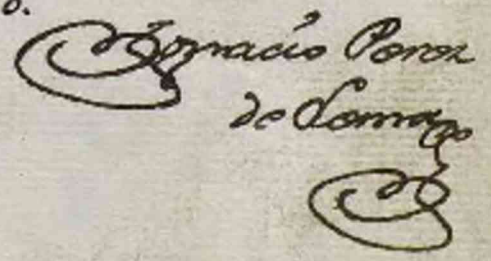 o.
Ignacio Perez
de Lema